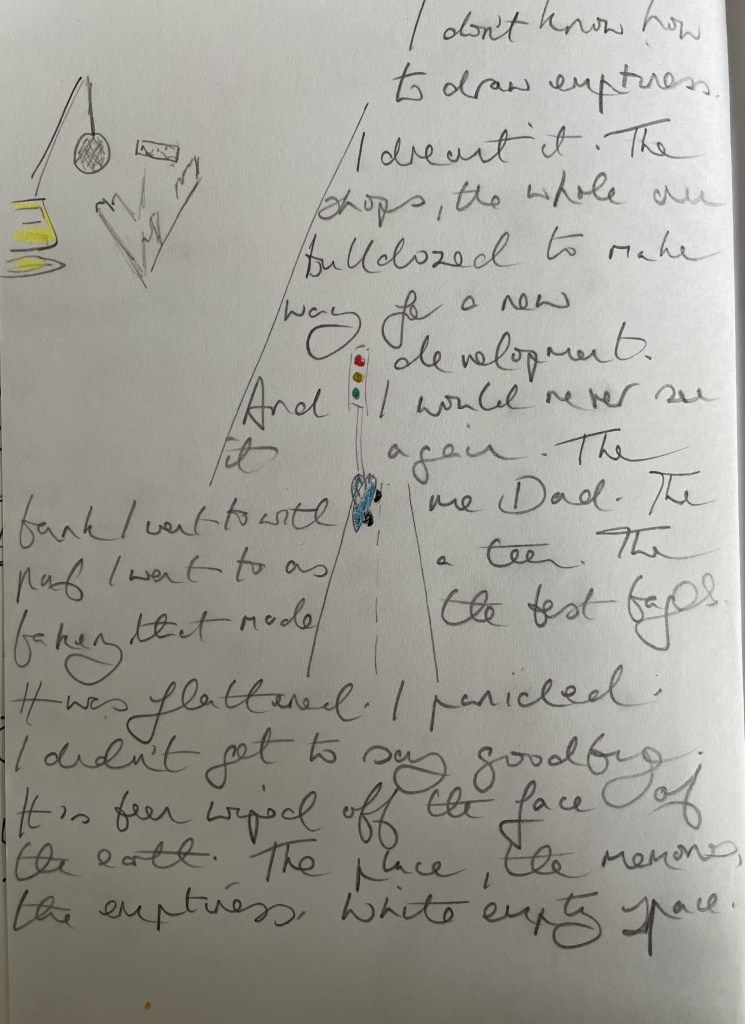 I don't know how
to draw emptiness.
I dreamt it. The
shops, the whole area
bulldozed to make
way for a new
development.
And I would never see
it again. The
bank I went to with me Dad. The
pub I went to as a teen. The
bakery that made the best bagels.
It was flattened. I panicked.
I didn't get to say goodbye.
It's been wiped off the face of
the earth. The place, the memories,
the emptiness. White empty space.